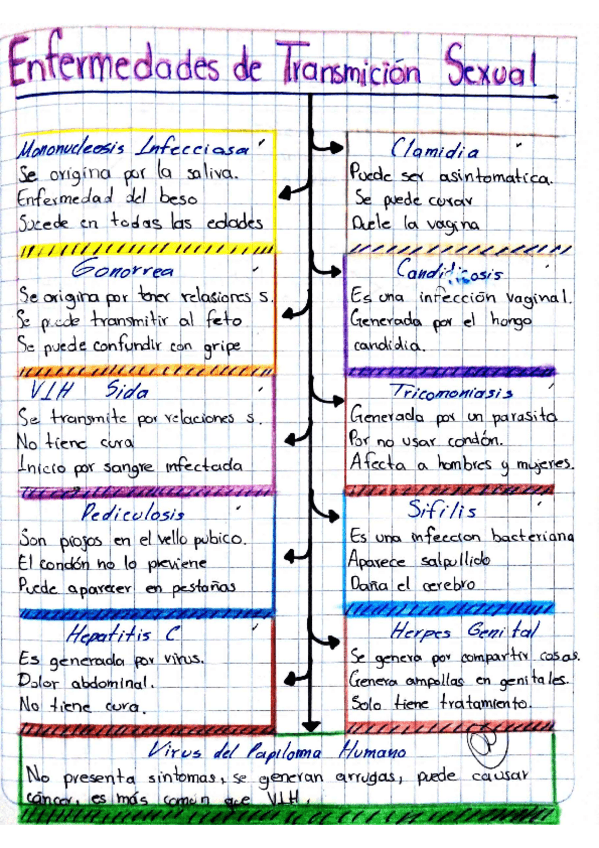 Enfermedades de Transmición Sexual
Mononucleosis Infecciosa
Se origina por la saliva.
Enfermedad del beso
Sucede en todas las edades
Clamidia
Puede ser asintomatica.
Se puede curar
Duele la vagina
Gonorrea
Se origina por tener relasiones s.
Se puede transmitir al feto
Se puede confundir con gripe
Candidiosis
Es una infección vaginal.
Generada por el hongo
candidia.
VIH Sida
Se transmite por relaciones s.
No tiene cura
Inicio por sangre infectada
Tricomoniasis
Generada por un parasito
Por no usar condón.
Afecta a hombres y mujeres.
Pediculosis
Son piojos en el vello pubico.
El condón no lo previene
Puede aparecer en pestañas
Sífilis
Es una infeccion bacteriana
Aparece salpullido
Daña el cerebro
Hepatitis C
Es generada por virus.
Dolor abdominal.
No tiene cura.
Herpes Genital
Se genera por compartir cosas.
Genera ampollas en genitales.
Solo tiene tratamiento.
Virus del Papiloma Humano
No presenta sintomas, se generan arrugas, puede causar
cáncer, es más común que VIH.